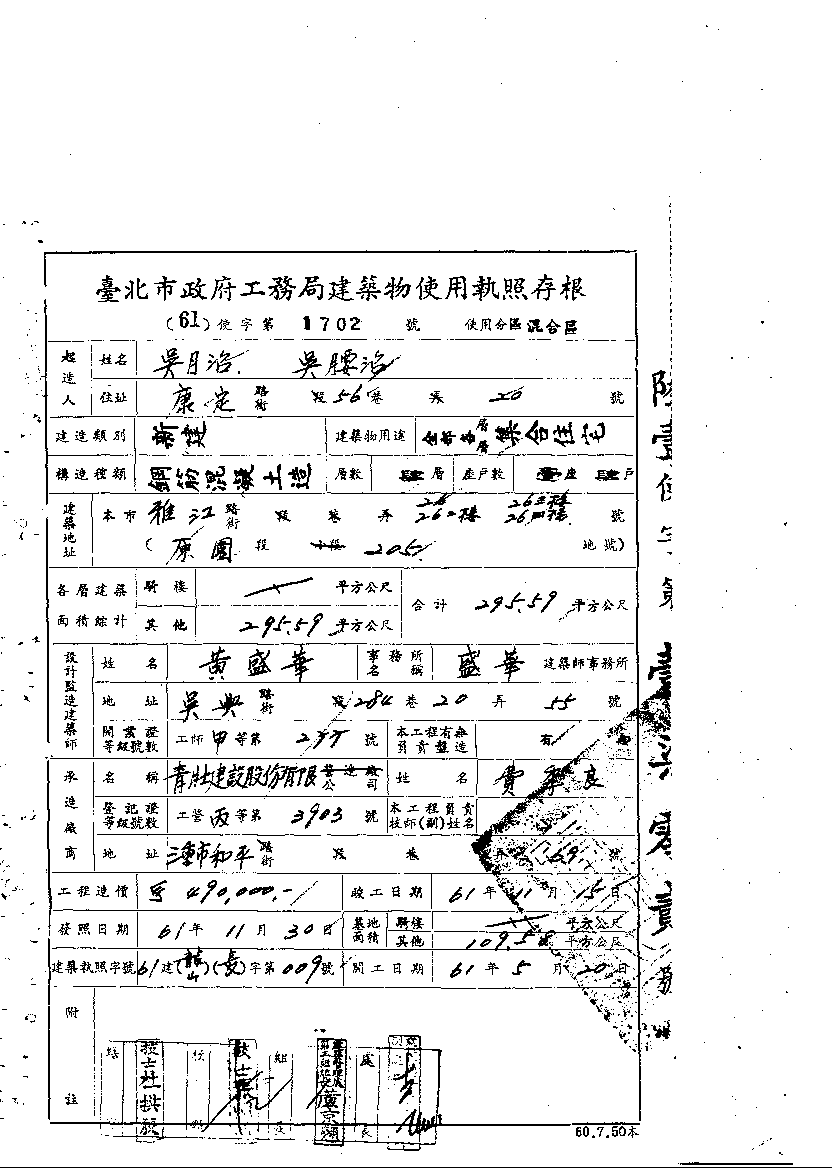 臺北市政府工務局建築物使用執照存根
(61)使字第 1702 號 使用分區 混合區
起造人 姓名 吳月治 吳腰治
住址 康定路街 段 56巷 弄 20 號
建造類別 新建 建築物用途 全部各層 集合住宅
構造種類 鋼筋混凝土造 層數 肆層 座戶數 壹座 肆戶
建築地址 本市 雅江路街 段 巷 弄 26 26二樓 26三樓 26四樓 號
(原園段 小段 205 地號)
各層建築面積綜計 騎樓 平方公尺 合計 295.59 平方公尺
其他 295.59 平方公尺
設計監造建築師 姓名 黃盛華 事務所名稱 盛華 建築師事務所
地址 吳興路街 段 284巷 20弄 55號
開業證等級號數 工師 甲等第 號 本工程有無負責監造 有
承造廠商 名稱 青壯建設股份有限公司 營造廠 姓名 費 良
登記證等級號數 工營 丙等第 3903 號 本工程負責技師(副)姓名
地址 三重市和平路街 段 巷 69 號
工程造價 490,000.- 竣工日期 61年11月15日
發照日期 61年11月30日 基地面積 騎樓 平方公尺
其他 109.58 平方公尺
建築執照字號 61建(龍山)(長)字第009號 開工日期 61年5月20日
附註
技士杜拱辰 技士 組長 處長
60.7.50本
陸壹使字第壹柒零貳號